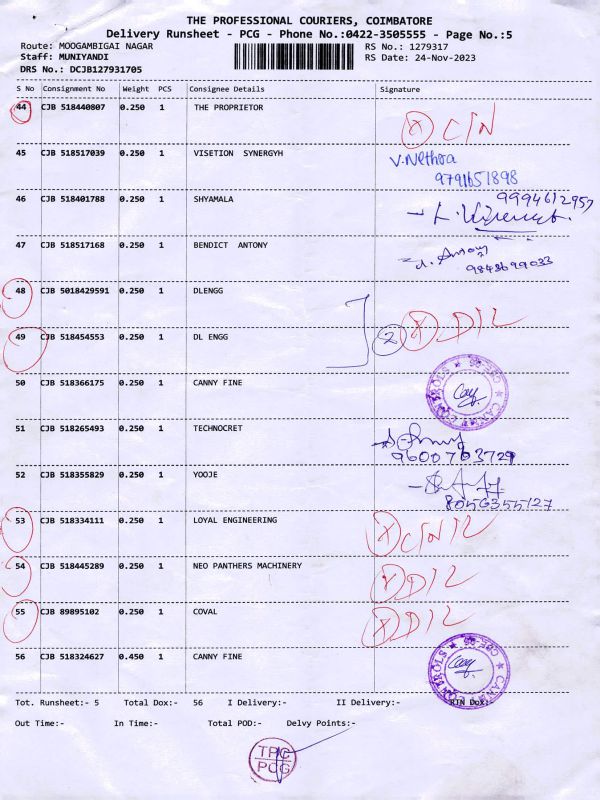 THE PROFESSIONAL COURIERS, COIMBATORE
Delivery Runsheet - PCG - Phone No.:0422-3505555 - Page No.:5
Route: MOOGAMBIGAI NAGAR RS No.: 1279317
Staff: MUNIYANDI RS Date: 24-Nov-2023
DRS No.: DCJB127931705
S No Consignment No Weight PCS Consignee Details Signature
44 CJB 518440807 0.250 1 THE PROPRIETOR
C/N
45 CJB 518517039 0.250 1 VISETION SYNERGYH V.Nethra
9791651898
46 CJB 518401788 0.250 1 SHYAMALA 9994612957
47 CJB 518517168 0.250 1 BENDICT ANTONY Antony
9843699033
48 CJB 5018429591 0.250 1 DLENGG
2 D/L
49 CJB 518454553 0.250 1 DL ENGG
50 CJB 518366175 0.250 1 CANNY FINE
CANNY CONTROLS CBE-35
51 CJB 518265493 0.250 1 TECHNOCRET
9600763729
52 CJB 518355829 0.250 1 YOOJE
8056355127
53 CJB 518334111 0.250 1 LOYAL ENGINEERING
54 CJB 518445289 0.250 1 NEO PANTHERS MACHINERY D/L
55 CJB 89895102 0.250 1 COVAL D/L
56 CJB 518324627 0.450 1 CANNY FINE
CANNY CONTROLS CBE-35
Tot. Runsheet:- 5 Total Dox:- 56 I Delivery:- II Delivery:- RTN Dox:-
Out Time:- In Time:- Total POD:- Delvy Points:-
TPC
PCG